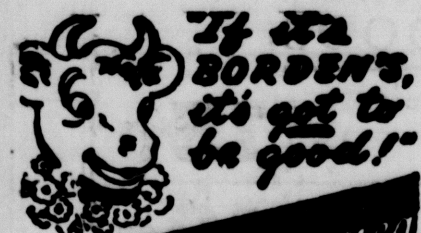 "If it's
BORDEN'S,
it's got to
be good!"